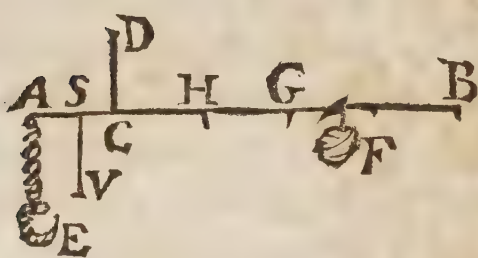 D
A S H G B
C F
V
E